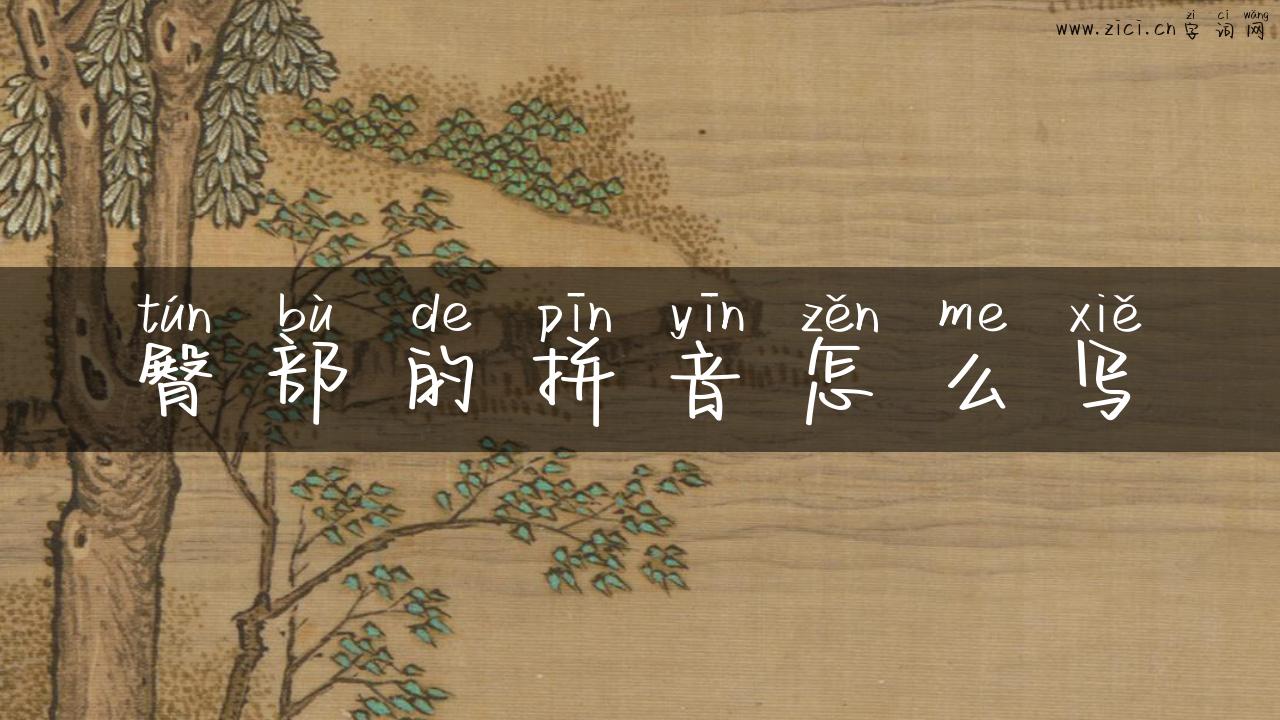 zì cí wǎng
www.zici.cn 字词网
tún bù de pīn yīn zěn me xiě
臀部的拼音怎么写